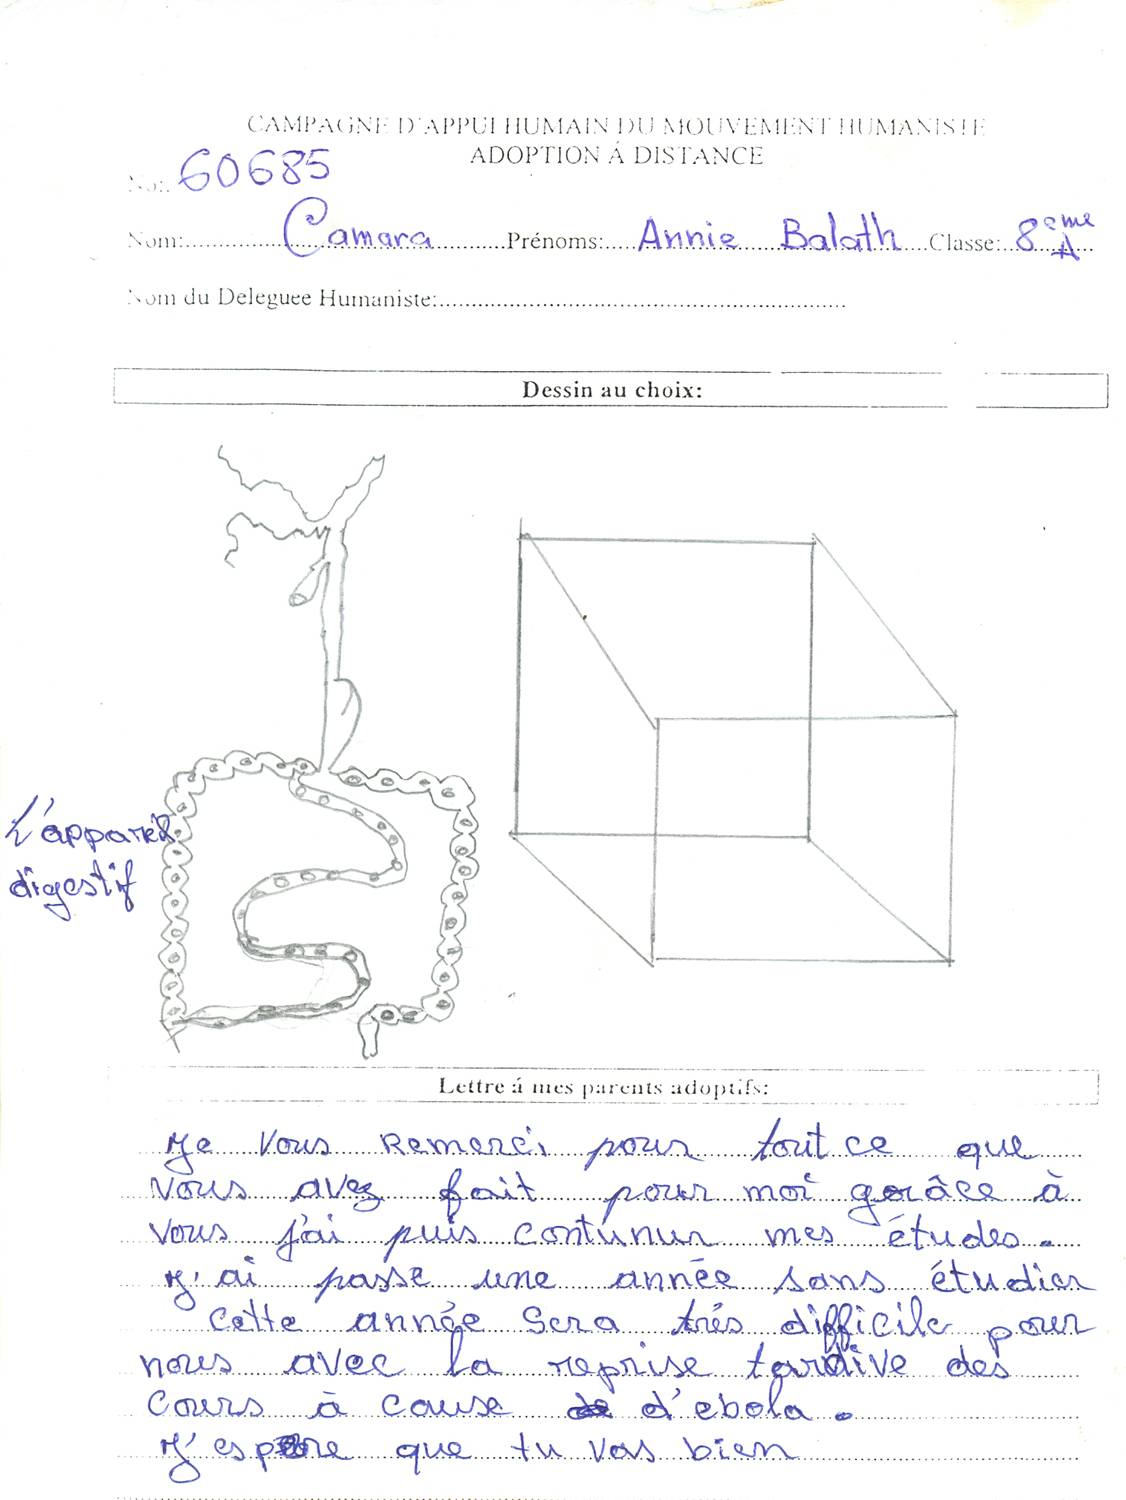 CAMPAGNE D'APPUI HUMAIN DU MOUVEMENT HUMANISTE
ADOPTION Á DISTANCE
No:. 60685
Nom:................Camara...........Prénoms:....Annie Balath....Classe:..8ème A
Nom du Deleguee Humaniste:................................................................
Dessin au choix:
L'appareil
digestif
Lettre á mes parents adoptifs:
Je vous Remerci pour tout ce que
vous avez fait pour moi gorâce à
vous j'ai puis continur mes études.
J'ai passé une année sans étudier
Cette année Sera trés difficile pour
nous avec la reprise tardive des
Cours à cause de d'ebola.
J'espere que tu vas bien